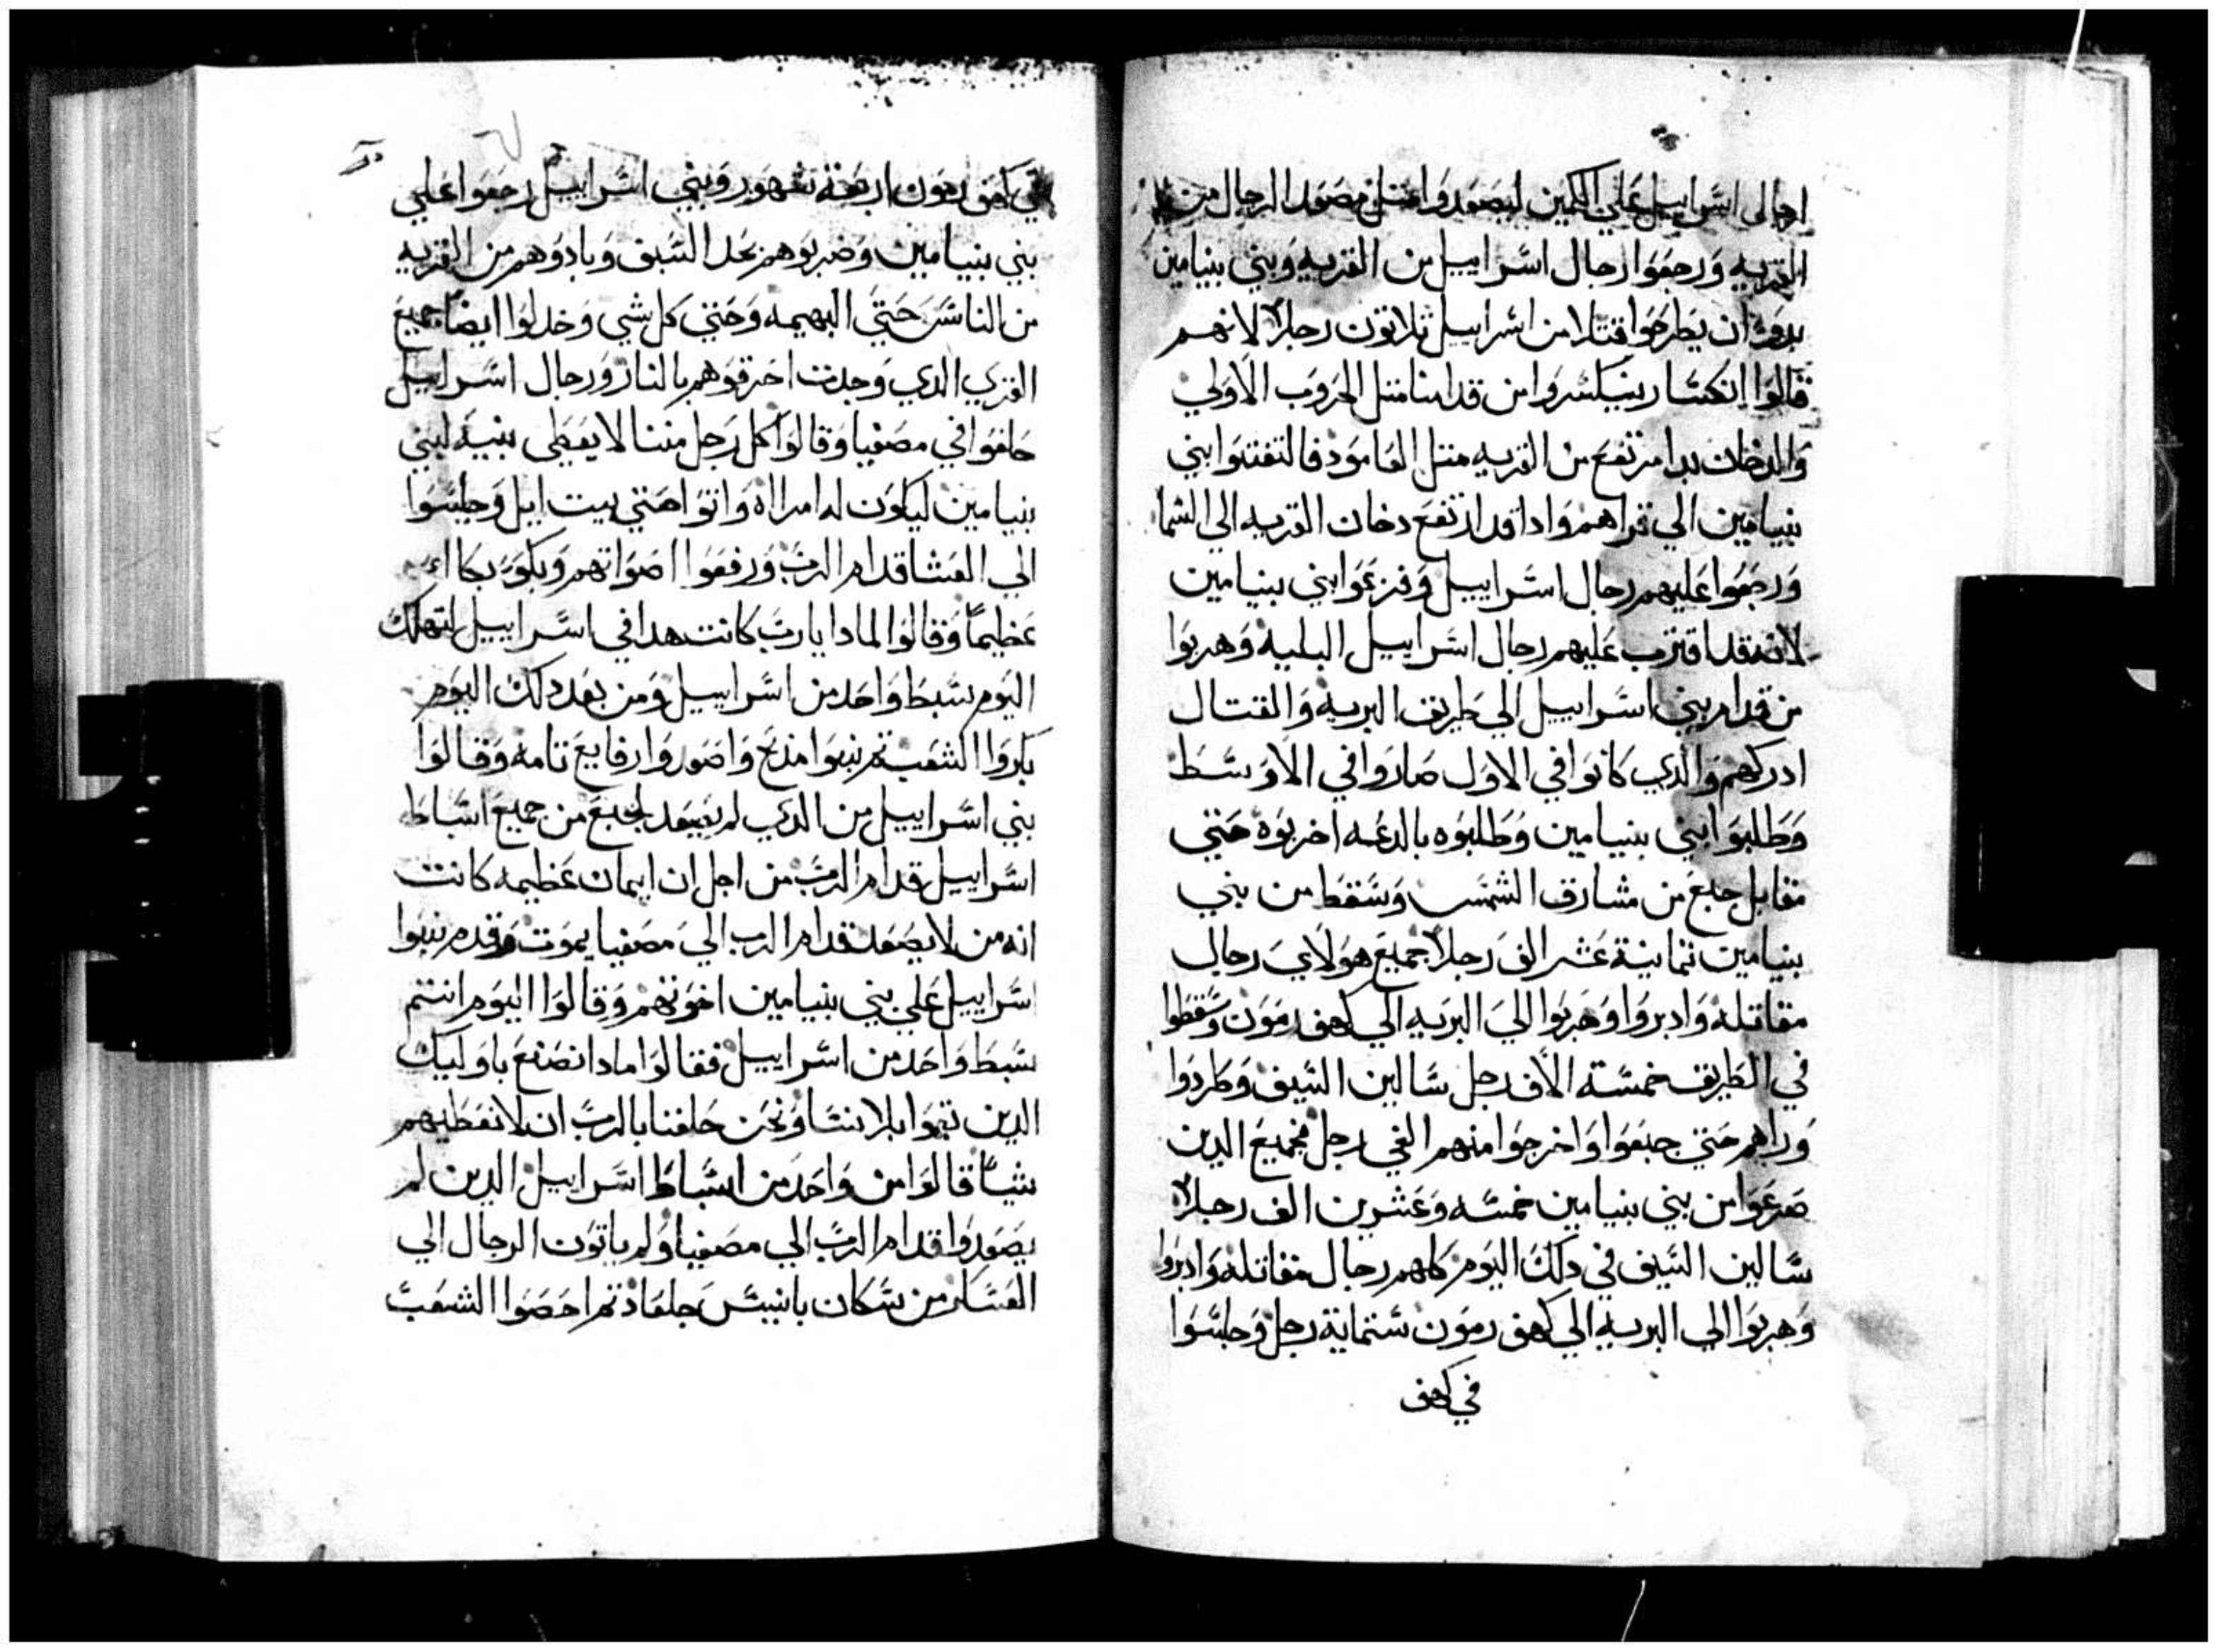 ارجالي اسراييل علي الكمين ليصعدوا مصعد الرجال من
القريه ورجعوا رجال اسراييل من القريه وبني بنيامين
بدوا ان يطرحوا قتلا من اسراييل ثلاثون رجلاً لانهم
قالوا انكسار ينكسروا من قدامنا متل الحروب الاولي
والدخان بدا مرتفع من القريه متل العامود فالتفتوا بني
بنيامين الي وراهم وادا قد ارتفع دخان القريه الي السما
ورجعوا عليهم رجال اسراييل وفزعوا بني بنيامين
لانه قد اقترب عليهم رجال اسراييل البليه وهربوا
من قدام بني اسراييل الي طريق البريه والقتال
ادركهم والدي كانوا في الاول صاروا في الاوسط
وطلبوا بني بنيامين وطلبوه بالدعه اخربوه حتي
مقابل جبع من مشارق الشمس وسقط من بني
بنيامين تمانية عشر الف رجلاً جميع هولاي رجال
مقاتله وادبروا وهربوا الي البريه الي كهف رمون وسقطوا
في الطريق خمسة الاف رجل سالين السيف وطردوا
وراهم حتي جبعوا واخرجوا منهم الفي رجل فجميع الدين
صرعوا من بني بنيامين خمسه وعشرين الف رجلاً
سالين السيف في دلك اليوم كلهم رجال مقاتله وادبروا
وهربوا الي البريه الي كهف رمون ستماية رجل وجلسوا
في كهف
في كهف رمون اربعة شهور وبني اسراييل رجعوا علي
بني بنيامين وضربوهم بحد السيف وبادوهم من القريه
من الناس حتي البهيمه وحتي كل شي وخدلوا ايضاً جميع
القري الدي وجدت احرقوهم بالنار ورجال اسراييل
حلفوا في مصفيا وقالوا كل رجل مننا لا يعطي بنيه لبني
بنيامين ليكون له امراه واتوا حتي بيت ايل وجلسوا
الي العشا قدام الرب ورفعوا اصواتهم وبكوا بكا
عظيماً وقالوا لمادا يارب كانت هدا في اسراييل لتهلك
اليوم سبط واحد من اسراييل ومن بعد دلك اليوم
بكروا الشعب تم نبوا مدبح واصعدوا رفايع تامه وقالوا
بني اسراييل من الدي لم يصعد لجبع من جميع اسباط
اسراييل قدام الرب من اجل ان ايمان عظيمه كانت
انه من لا يصعد قدام الرب الي مصفيا يموت وقدم نبوا
اسراييل علي بني بنيامين اخوتهم وقالوا اليوم انتم
سبط واحد من اسراييل فقالوا مادا نصنع باوليك
الدين تبقوا بلا نسا ونحن حلفنا بالرب ان لا نعطيهم
شياً قالوا من واحد من اسباط اسراييل الدين لم
يصعدوا قدام الرب الي مصفيا ولم ياتون الرجال الي
العسكر من سكان يابيس جلعاد تم احصوا الشعب